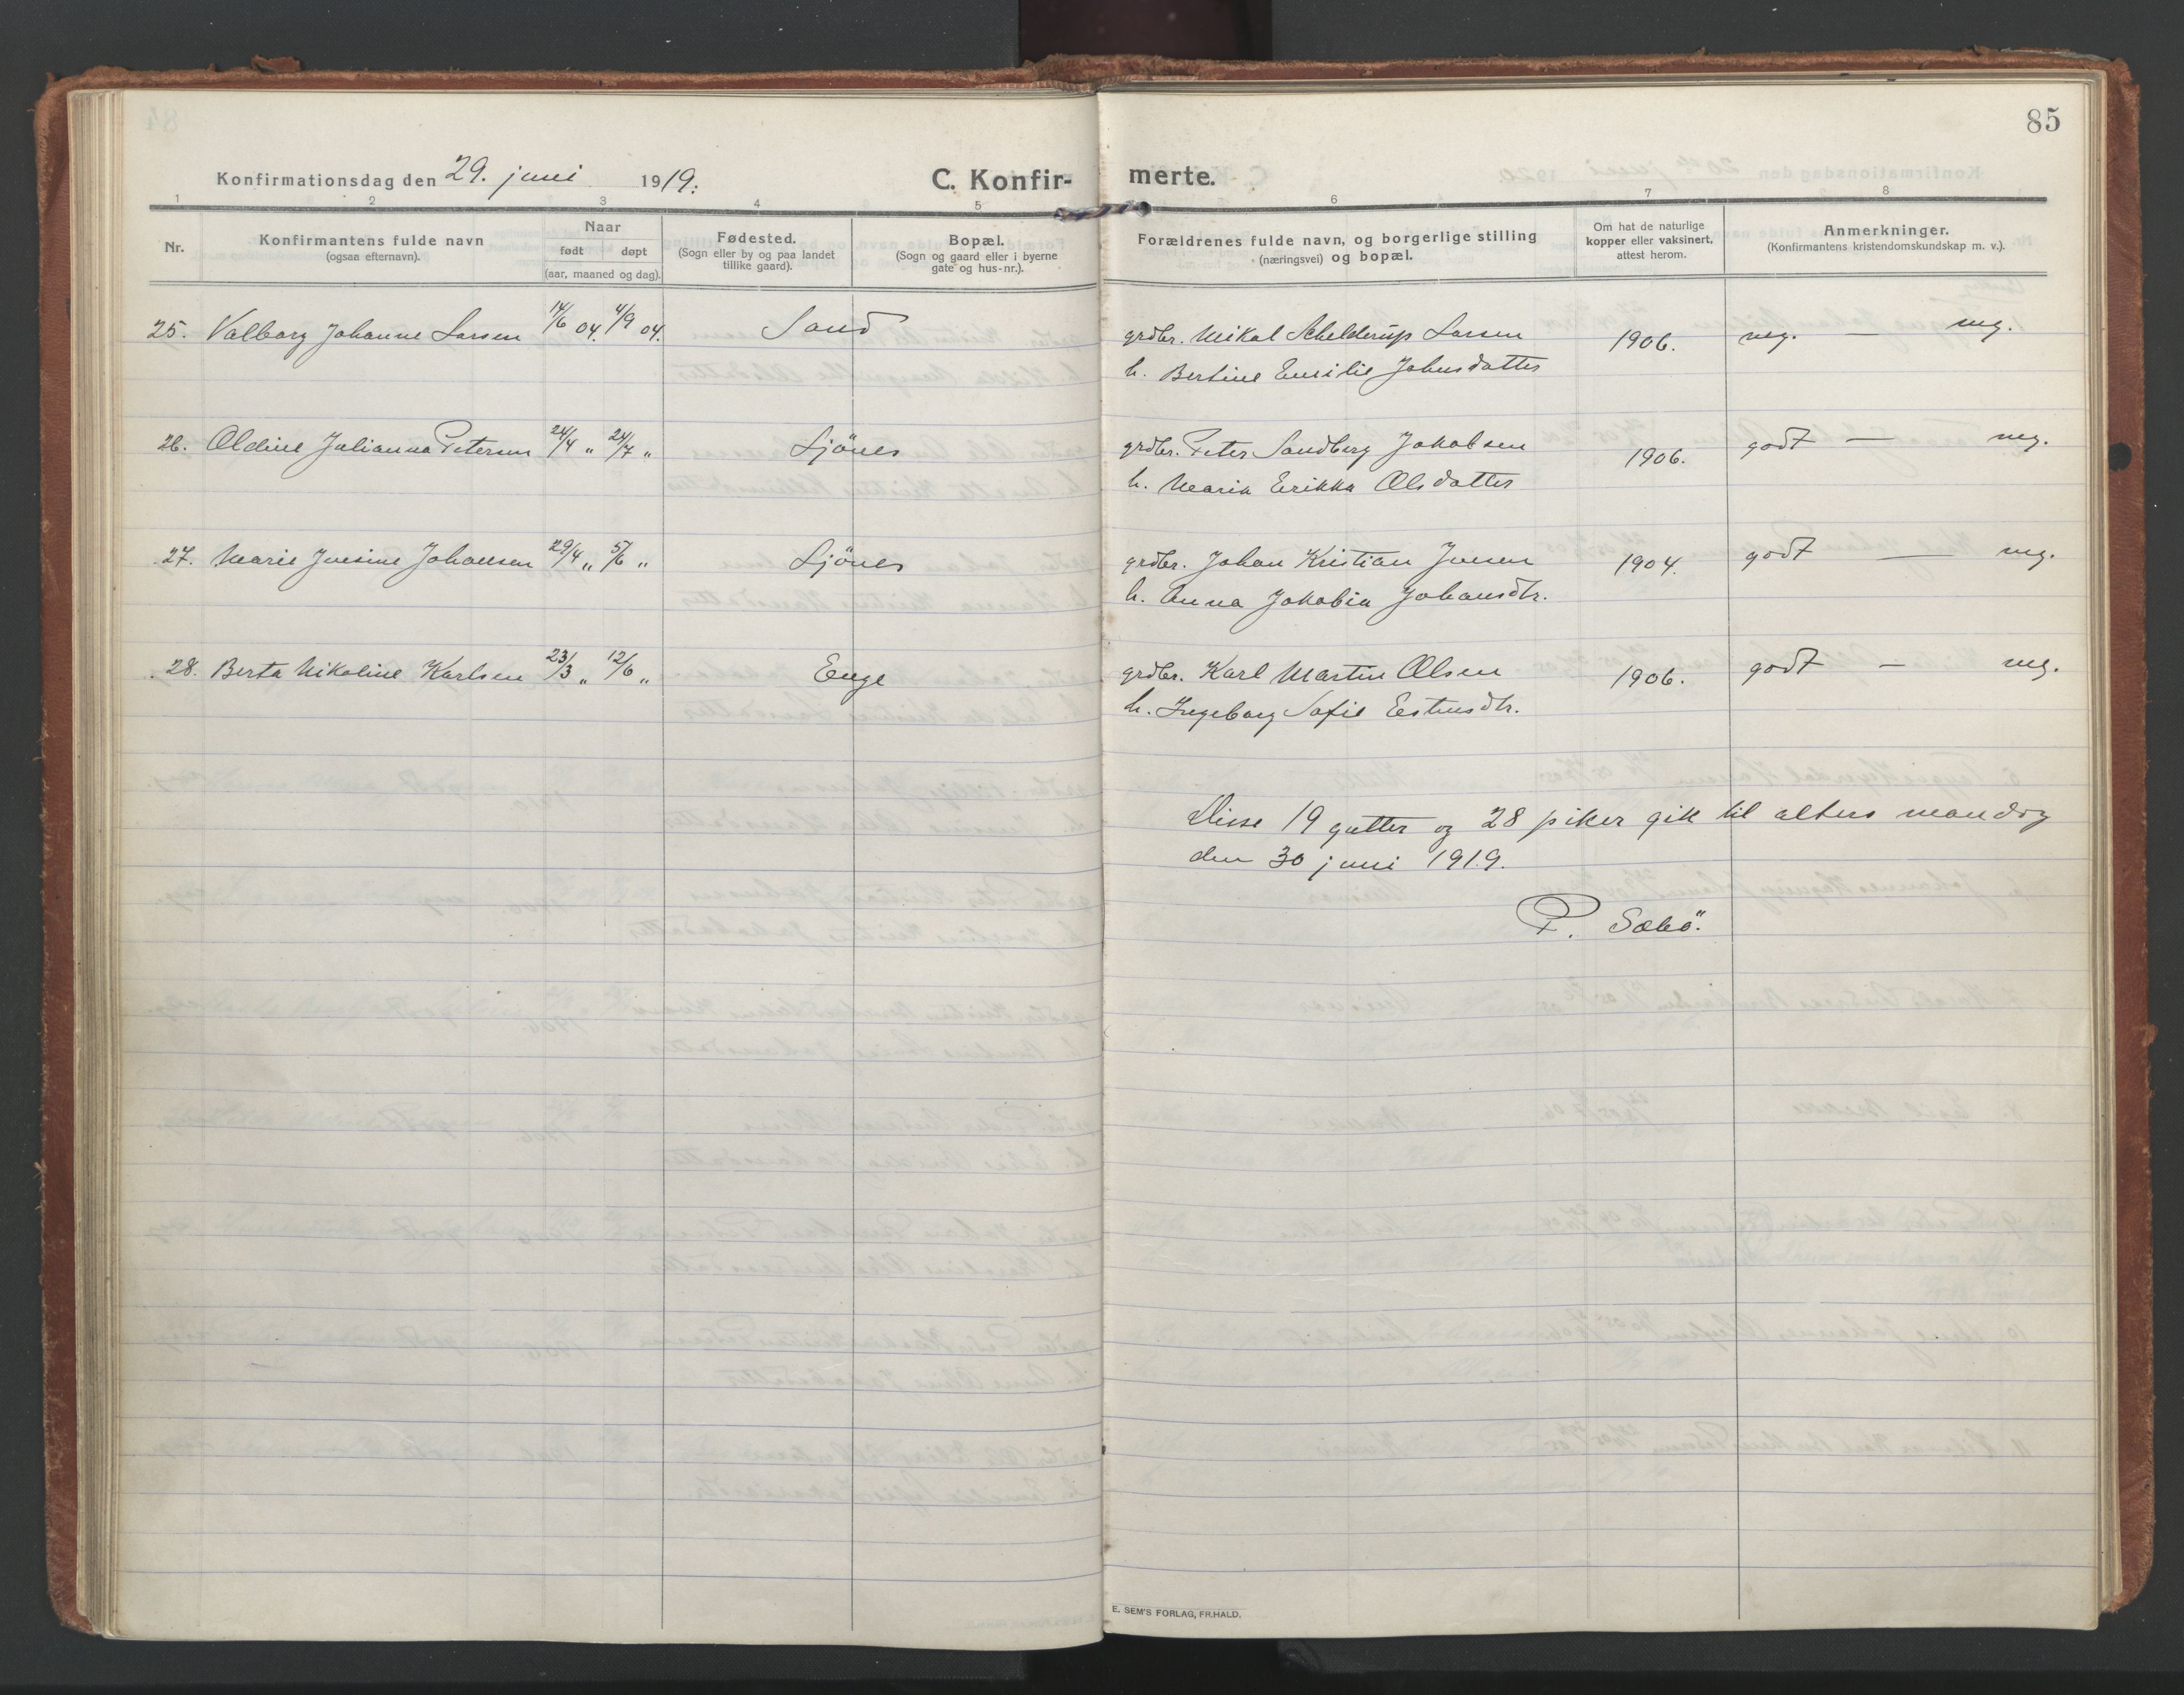 85
Konfirmationsdag den 29. juni 1919.
C. Konfirmerte.
1 2 3 4 5 6 7 8
Nr.
Konfirmantens fulde navn
(ogsaa efternavn).
Naar
født døpt
(aar, maaned og dag).
Fødested.
(Sogn eller by og paa landet
tillike gaard).
Bopæl.
(Sogn og gaard eller i byerne
gate og hus-nr.).
Forældrenes fulde navn, og borgerlige stilling
(næringsvei) og bopæl.
Om hat de naturlige
kopper eller vaksinert,
attest herom.
Anmerkninger.
(Konfirmantens kristendomskundskap m. v.).
25. Valborg Johanne Larsen 14/6 04. 4/9 04. Sand grdbr. Mikal Schelderup Larsen 1906. mg. — mg.
h. Bertine Emilie Johnsdatter
26. Oldine Julianna Petersen 24/4 " 24/7 " Sjönes grdbr. Peter Sandberg Jakobsen 1906. godt — mg.
h. Maria Erikka Olsdatter
27. Marie Jensine Johansen 29/4 " 5/6 " Sjönes grdbr. Johan Kristian Jensen 1904. godt — mg.
h. Anna Jakobia Johansdtr.
28. Berta Nikoline Karlsen 23/3 " 12/6 " Enge grdbr. Karl Martin Olsen 1906. godt — mg.
h. Ingeborg Sofie Estensdtr.
Disse 19 gutter og 28 piker gik til alters mandag
den 30 juni 1919.
P. Sæbö.
E. SEM'S FORLAG, FR.HALD.